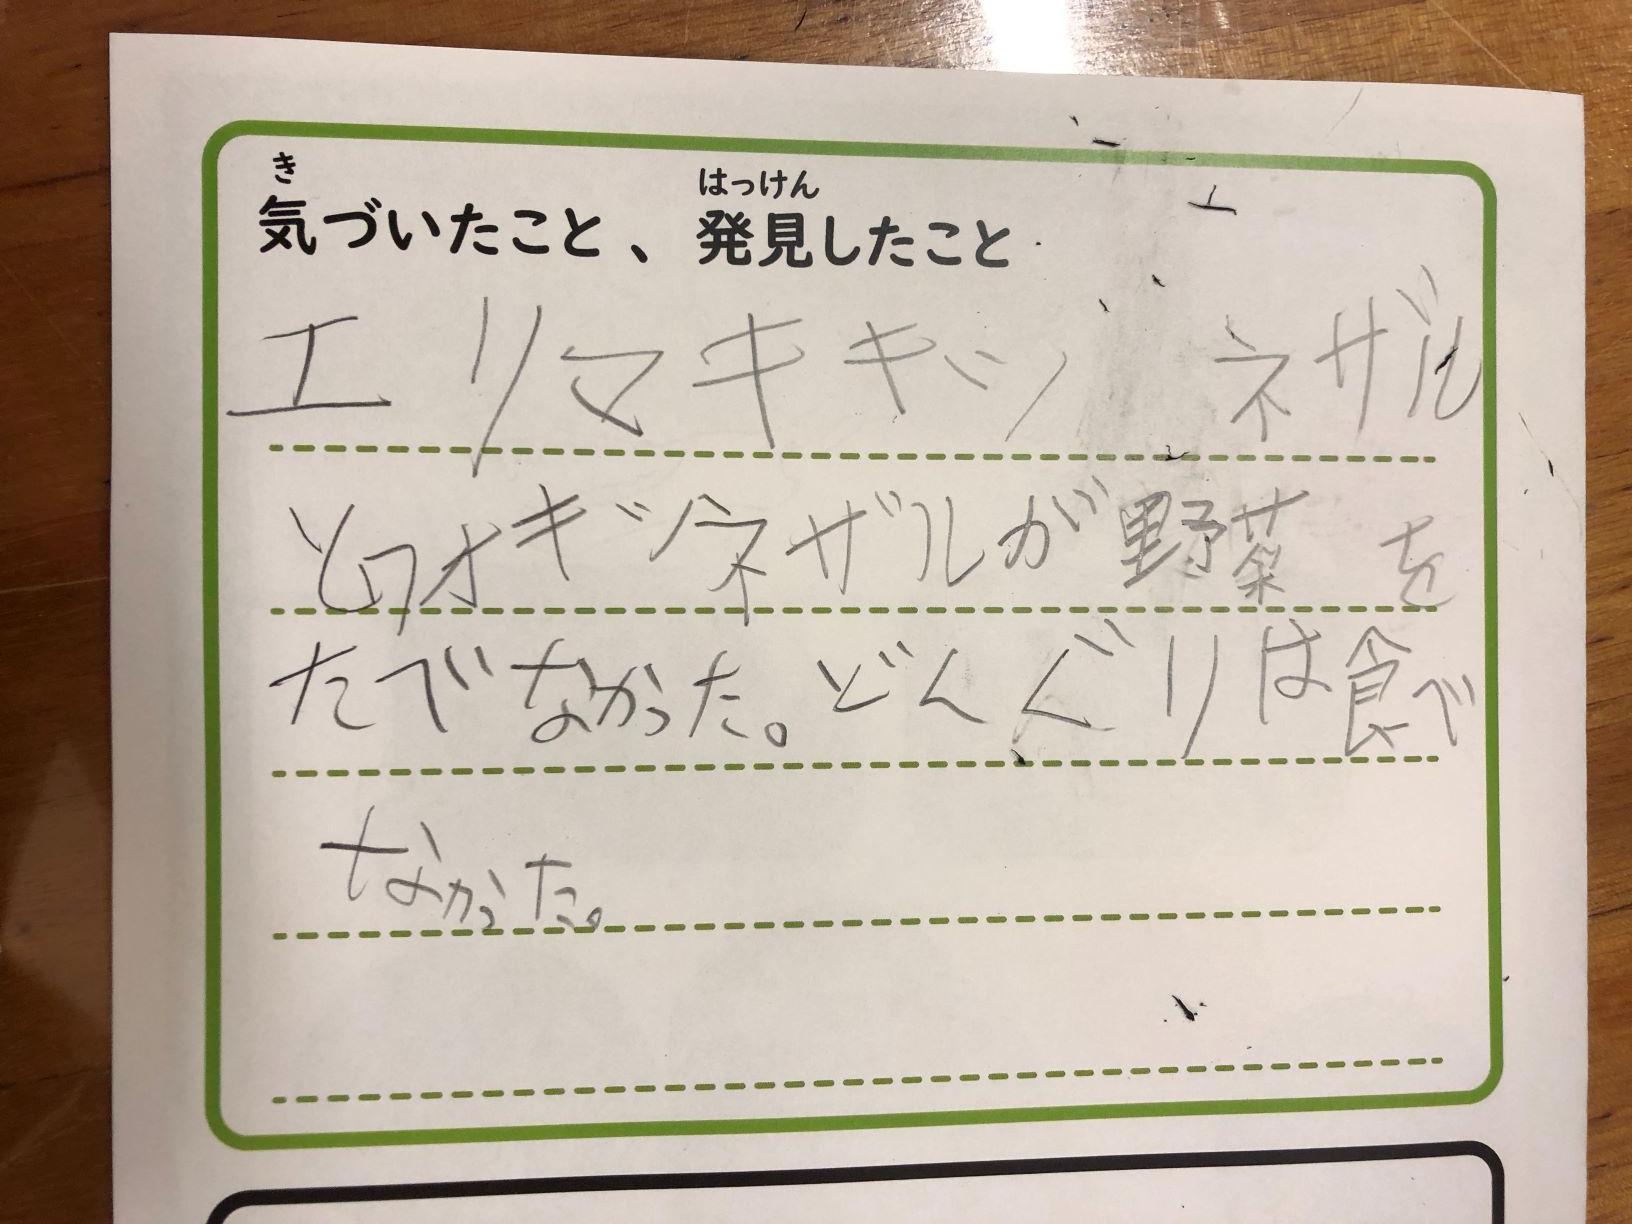 き はっけん
気づいたこと、発見したこと
エリマキキツネザル
とワオキツネザルが野菜を
たでなかった。どんぐりは食べ
なかった。